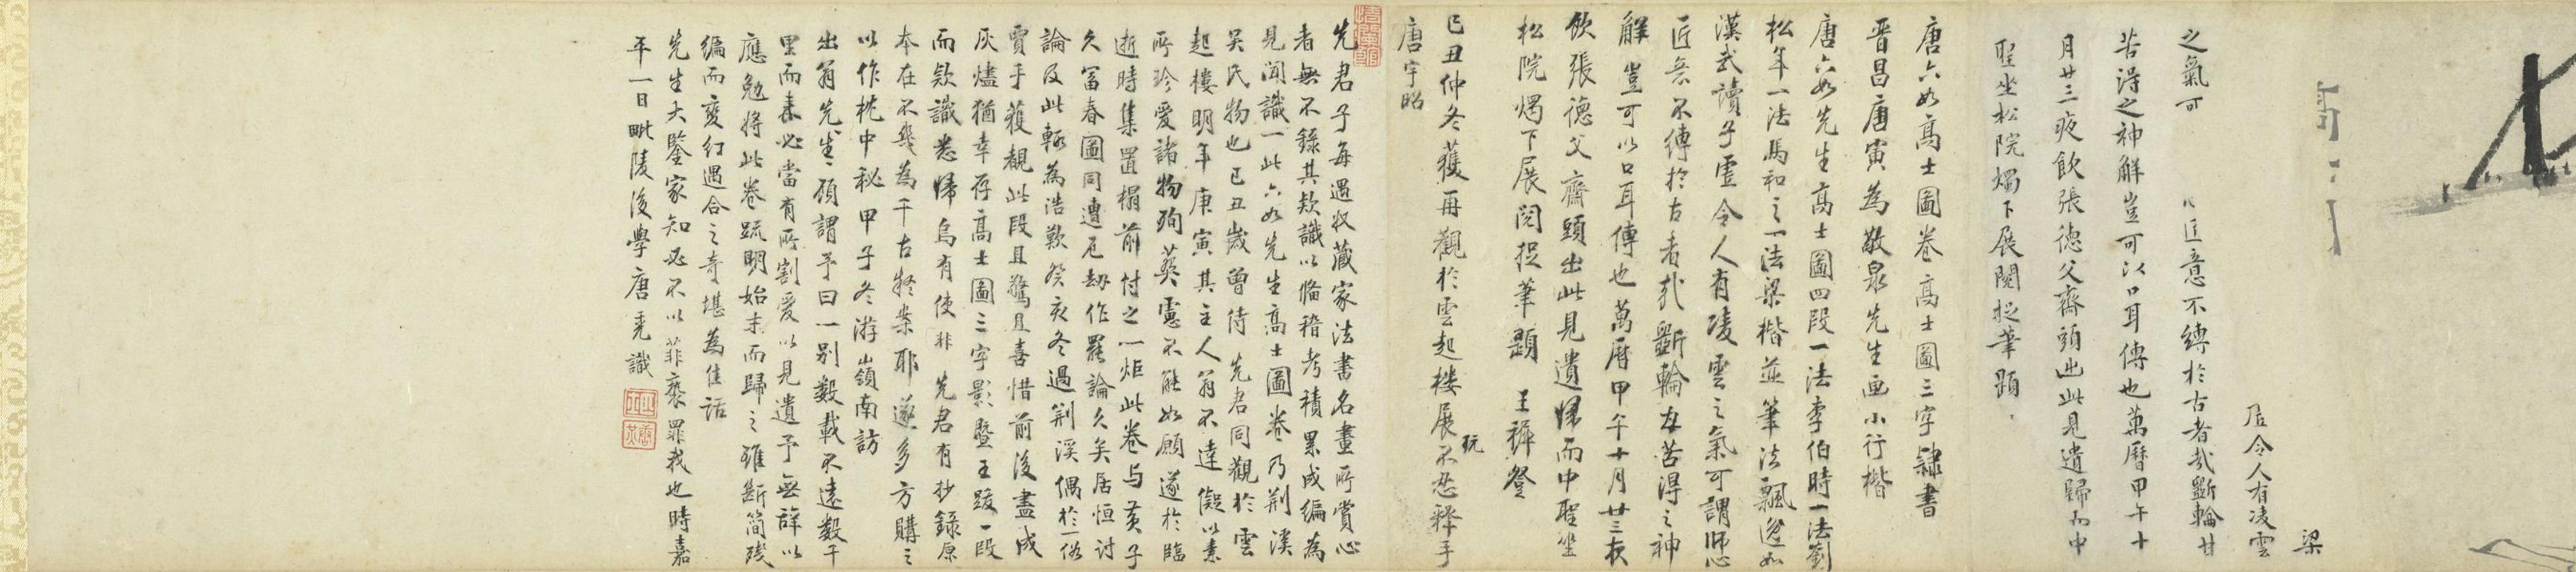 梁
居令人有凌雲
之氣可
匠意不縛於古者哉斲輪甘
苦得之神解豈可以口耳傳也萬曆甲午十
月廿三夜飲張德父齋頭出此見遺歸而中
聖坐松院燭下展閱捉筆題
唐六如高士圖卷高士圖三字隸書
晋昌唐寅為敬泉先生画小行楷
唐六如先生高士圖四段一法李伯時一法劉
松年一法馬和之一法梁楷並筆法飄逸如
漢武讀子虛令人有凌雲之氣可謂師心
匠意不縛於古者哉斲輪甘苦得之神
解豈可以口耳傳也萬曆甲午十月廿三夜
飲張德父齋頭出此見遺歸而中聖坐
松院燭下展閱捉筆題 王穉登
己丑仲冬獲再觀於雲起楼展玩不忍釋手
唐宇昭
先君子每遇收藏家法書名畫所賞心
者無不錄其欵識以俻稽考積累成編為
見聞識一此六如先生高士圖卷乃荆溪
吴氏物也己丑歲曾侍 先君同觀於雲
起樓明年庚寅其主人翁不達儗以素
所珍愛諸物殉葬慮不能如願遂於臨
逝時集置榻前付之一炬此卷与黄子
久富春圖同遭厄劫作罷論久矣居恒討
論及此輒為浩歎癸亥冬過荆溪偶於一俗
賈手獲覩此段且驚且喜惜前後盡成
灰燼猶幸存高士圖三字影暨王跋一段
而欵識悉歸烏有使非 先君有抄錄原
本在不幾為千古疑案耶遂多方購之
以作枕中秘甲子冬游嶺南訪
出翁先生頎謂予曰一别數載不遠數千
里而来必當有所割愛以見遺予無辞以
應勉将此卷䟽明始末而歸之雖斷簡残
編而变幻遇合之奇堪為佳話
先生大鑒家知必不以菲褻罪我也時嘉
平一日毗陵後學唐炗識